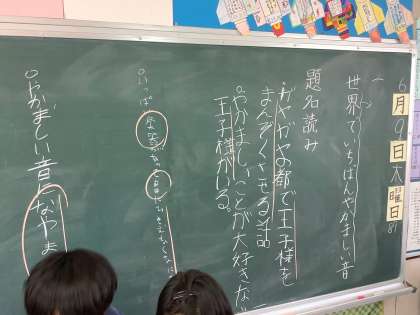 6月9日木曜日
81
世界でいちばんやかましい音
題名読み
・ガヤガヤの都で王子様を
まんぞくさせる話
○やかましいことが大好きな
王子様がいる。
○やかましい音になやま